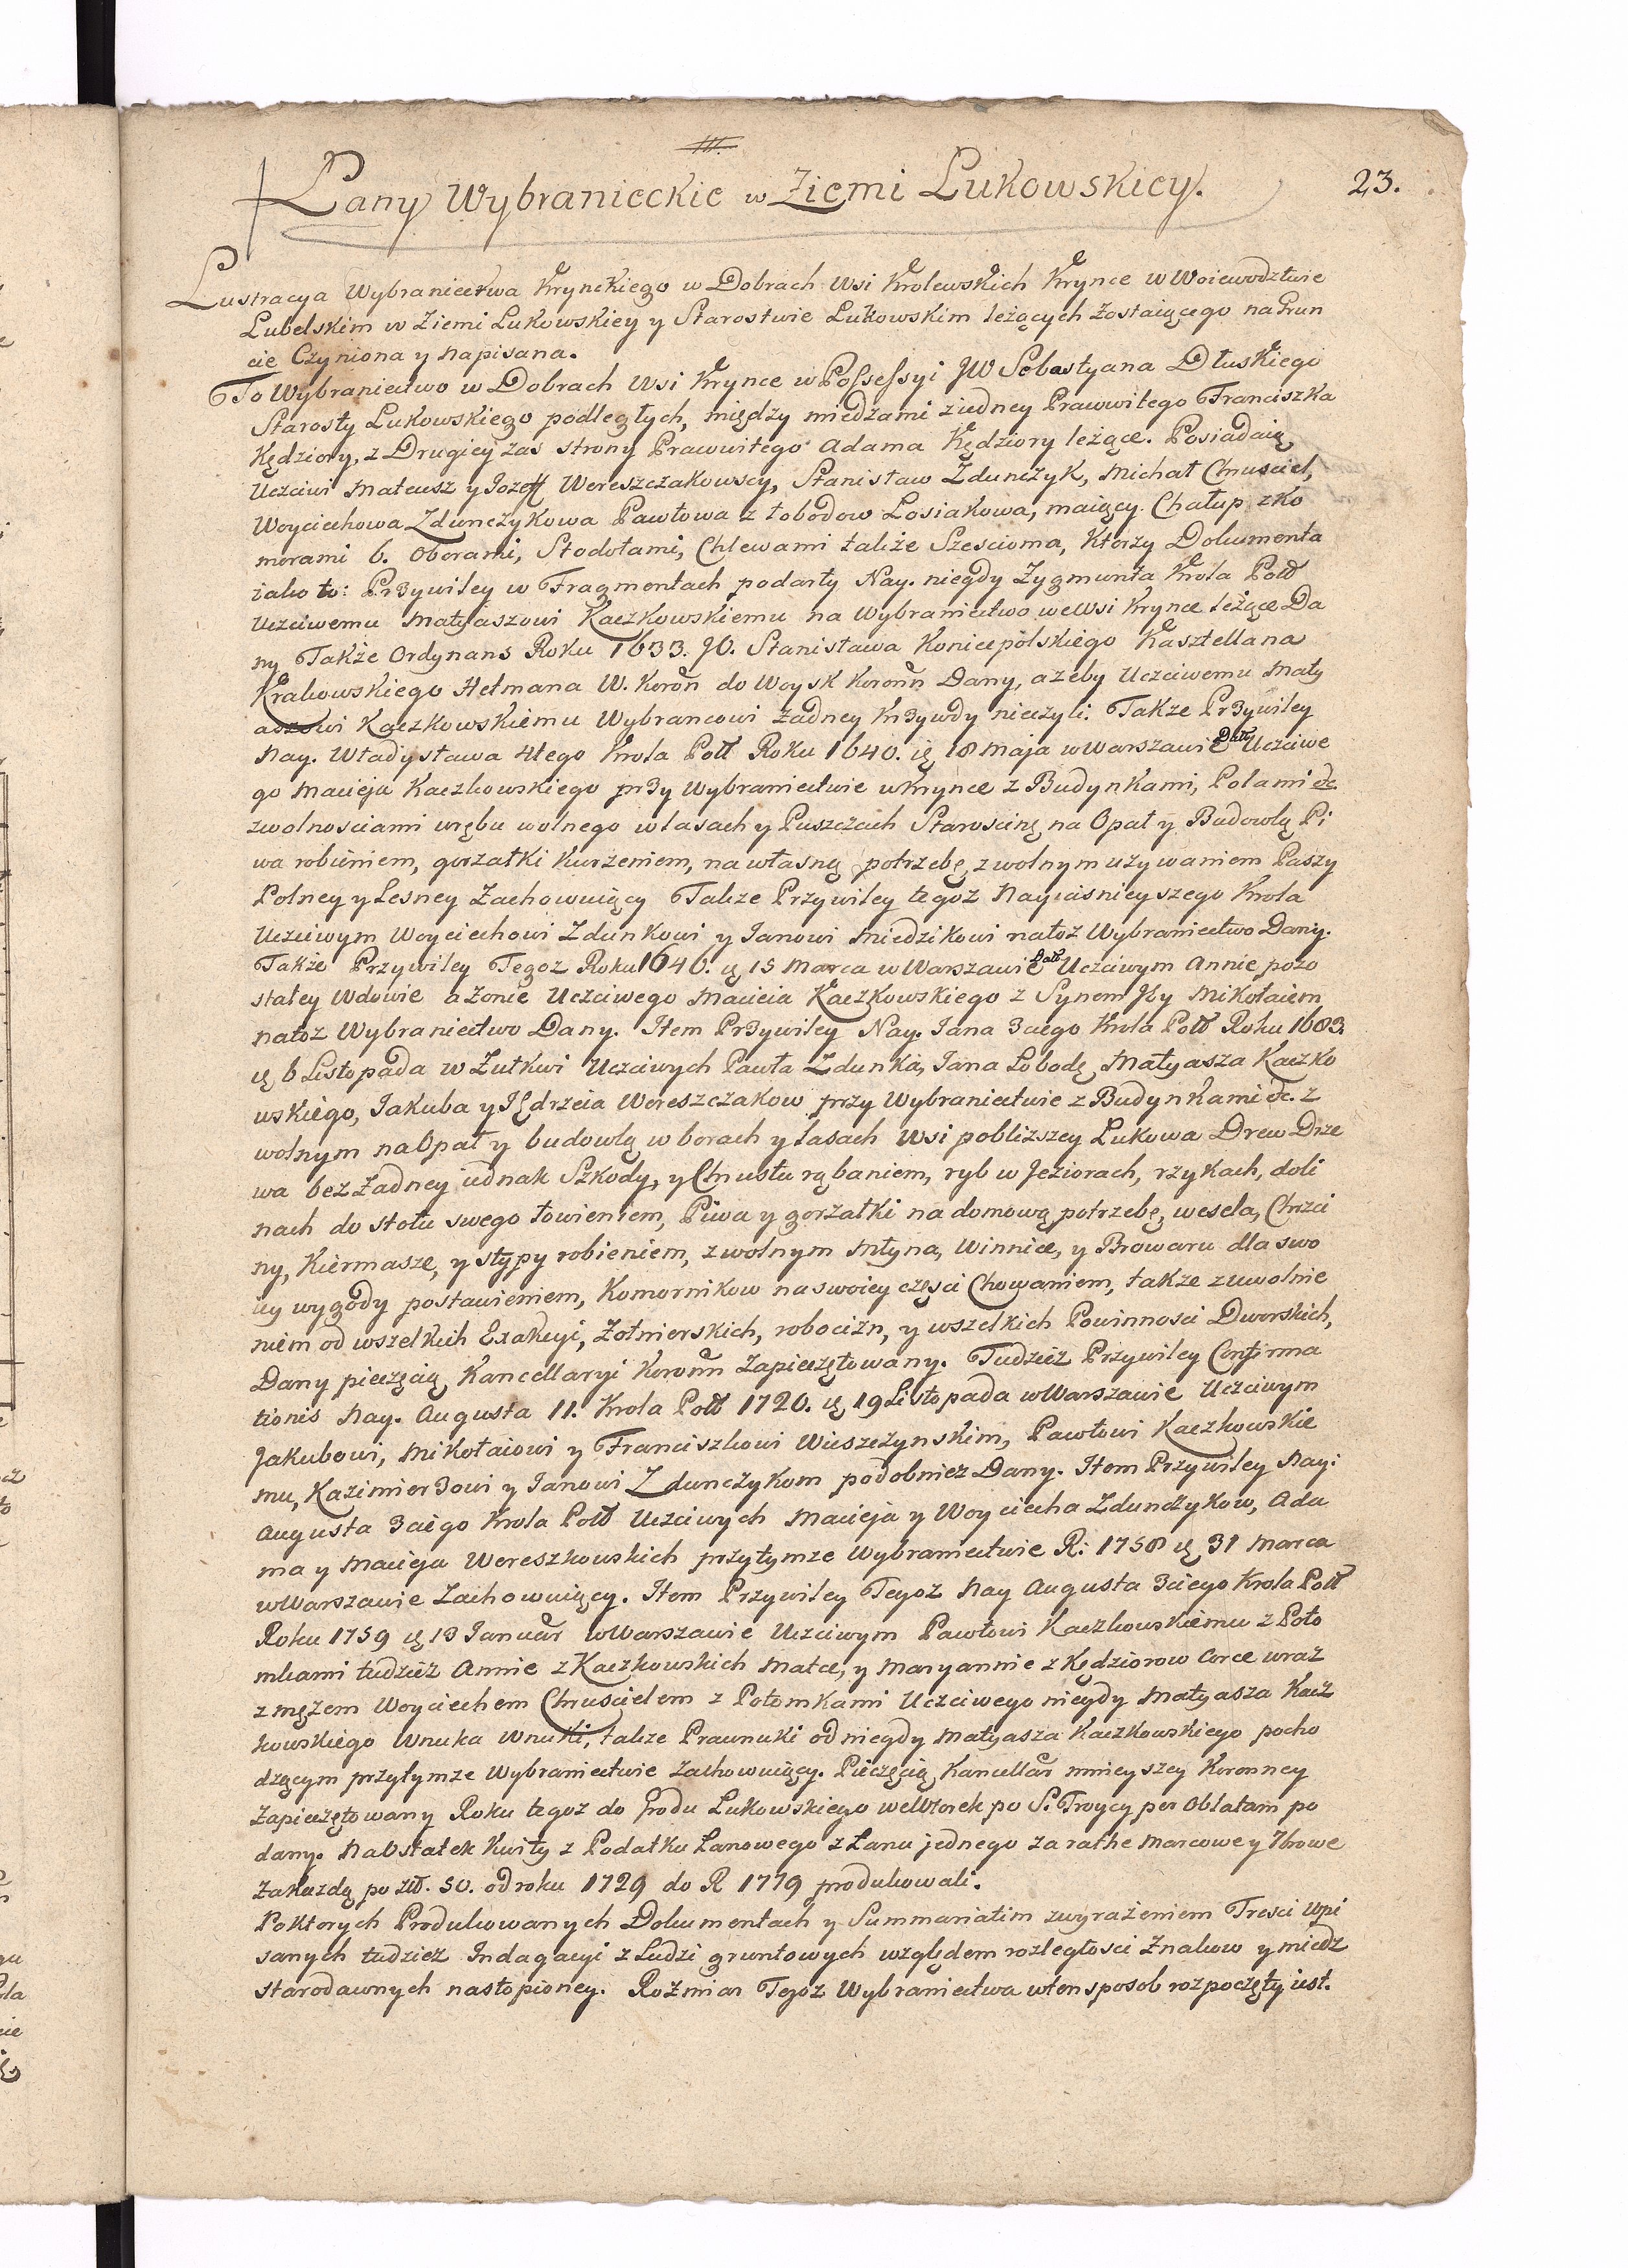 III.
23.
Łany Wybranieckie w Ziemi Łukowskiey.
Lustracya Wybraniectwa Krynckiego w Dobrach Wsi Krolewskich Krynce w Woiewodztwie
Lubelskim w Ziemi Łukowskiey y Starostwie Łukowskim leżących zostaiącego na Grun
cie Czyniona y napisana.
To Wybraniectwo w Dobrach Wsi Krynce w Possessyi JW Sebastyana Dłuskiego
Starosty Łukowskiego podległych, między miedzami z iedney Prawowitego Franciszka
Kędziory, z Drugiey zas strony Prawowitego Adama Kędziory leżące. Posiadaią
Uczciwi Mateusz y Jozeff Wereszczakowscy, Stanisław Zdunczyk, Michał Chrusciel,
Woyciechowa Zdunczykowa Pawłowa z Łobodow Łosiakowa, maiący Chałup z Ko
morami 6. Oborami, Stodołami, Chlewami także Szescioma, Ktorzy Dokumenta
iako to: Przywiley w Fragmentach podarty Nay. niegdy Zygmunta Krola Poll
Uczciwemu Matyaszowi Kaczkowskiemu na Wybraniectwo we Wsi Krynce leżące Da
ny Także Ordynans Roku 1633. JO. Stanisława Koniecpolskiego Kasztellana
Krakowskiego Hetmana W. Koron do Woysk Koronn Dany, azeby Uczciwemu Maty
aszowi Kaczkowskiemu Wybrancowi żadney Krzywdy nieczyli. Takze Przywiley
Nay. Władysława 4tego Krola Poll Roku 1640. ię 18 Maja w Warszawie Datt Uczciwe
go Macieja Kaczkowskiego przy Wybraniectwie w Krynce z Budynkami, Polami &c
z wolnosciami wrębu wolnego w lasach y Puszczach Staroscinę na Opał y Budowlą Pi
wa robieniem, gorzałki Kurzeniem, na własną potrzebę, z wolnym używaniem Paszy
Polney y Lesney Zachowuiący Także Przywiley tegoz Nayiasnieyszego Krola
Uczciwym Woyciechowi Zdunkowi y Janowi Miedzikowi na toz Wybraniectwo Dany.
Także Przywiley Tegoz Roku 1646. ię 15 Marca w Warszawie Datt Uczciwym Annie pozo
stałey Wdowie a Żonie Uczciwego Macieia Kaczkowskiego z Synem Jey Mikołaiem
na toz Wybraniectwo Dany. Item Przywiley Nay. Jana 3ciego Krola Poll Roku 1683.
ię 6 Listopada w Żułkwi Uczciwych Pawła Zdunka, Jana Łobodę, Matyasza Kaczko
wskiego, Jakuba y Jędrzeia Wereszczakow przy Wybraniectwie z Budynkami &c. z
wolnym na Opał y budowlą w borach y lasach Wsi pobliższey Łukowa Drew Drze
wa bez żadney iednak Szkody, y Chrustu rąbaniem, ryb w Jeziorach, rzykach, doli
nach do stołu swego łowieniem, Piwa y gorzałki na domową potrzebę, wesela, Chrzci
ny, Kiermasze, y stypy robieniem, z wolnym Młyna, Winnice, y Browaru dla swo
iey wygody postawieniem, Komornikow na swoiey częsci Chowaniem, także z uwolnie
niem od wszelkich Exakcyi, Żołnierskich, robocizn, y wszelkich Powinnosci Dworskich,
Dany pieczęcią Kancellaryi Koronn Zapieczętowany. Tudzież Przywiley Confirma
tionis Nay. Augusta II. Krola Poll 1720. ię 19 Listopada w Warszawie Uczciwym
Jakubowi, Mikołaiowi y Franciszkowi Wieszczynskim, Pawłowi Kaczkowskie
mu, Kazimierzowi y Janowi Zdunczykom podobniez Dany. Item Przywiley Nay:
Augusta 3ciego Krola Poll Uczciwych Macieja y Woyciecha Zdunczykow, Ada
ma y Macieja Wereszkowskich przytymze Wybraniectwie R: 1758 ię 31 Marca
w Warszawie Zachowuiący. Item Przywiley Tegoz Nay Augusta 3ciego Krola Poll
Roku 1759 ię 13 Januar w Warszawie Uczciwym Pawłowi Kaczkowskiemu z Poto
mkami tudzież Annie z Kaczkowskich Matce, y Maryannie z Kędziorow Corce wraz
z mężem Woyciechem Chruscielem z Potomkami Uczciwego niegdy Matyasza Kacz
kowskiego Wnuka Wnuki, także Prawnuki od niegdy Matyasza Kaczkowskiego pocho
dzącym przytymze Wybraniectwie zachowuiący. Pieczęcią Kancellar mnieyszey Koronney
Zapieczętowany Roku tegoz do Grodu Łukowskiego we Wtorek po S. Troycy per Oblatam po
dany. Na Ostatek Kwity z Podatku Łanowego z Łanu jednego za rathe Marcowe y 7browe
Zakazdą po Złł. 50. od roku 1729 do R 1779 produkowali.
Po Ktorych Produkowanych Dokumentach y Summariatim z wyrażeniem Tresci Wpi
sanych tudziez Indagacyi z Ludzi gruntowych względem rozległosci Znakow y miedz
starodawnych nastopioney. Rozmiar Tegoz Wybraniectwa w ten sposob rozpoczęty iest.